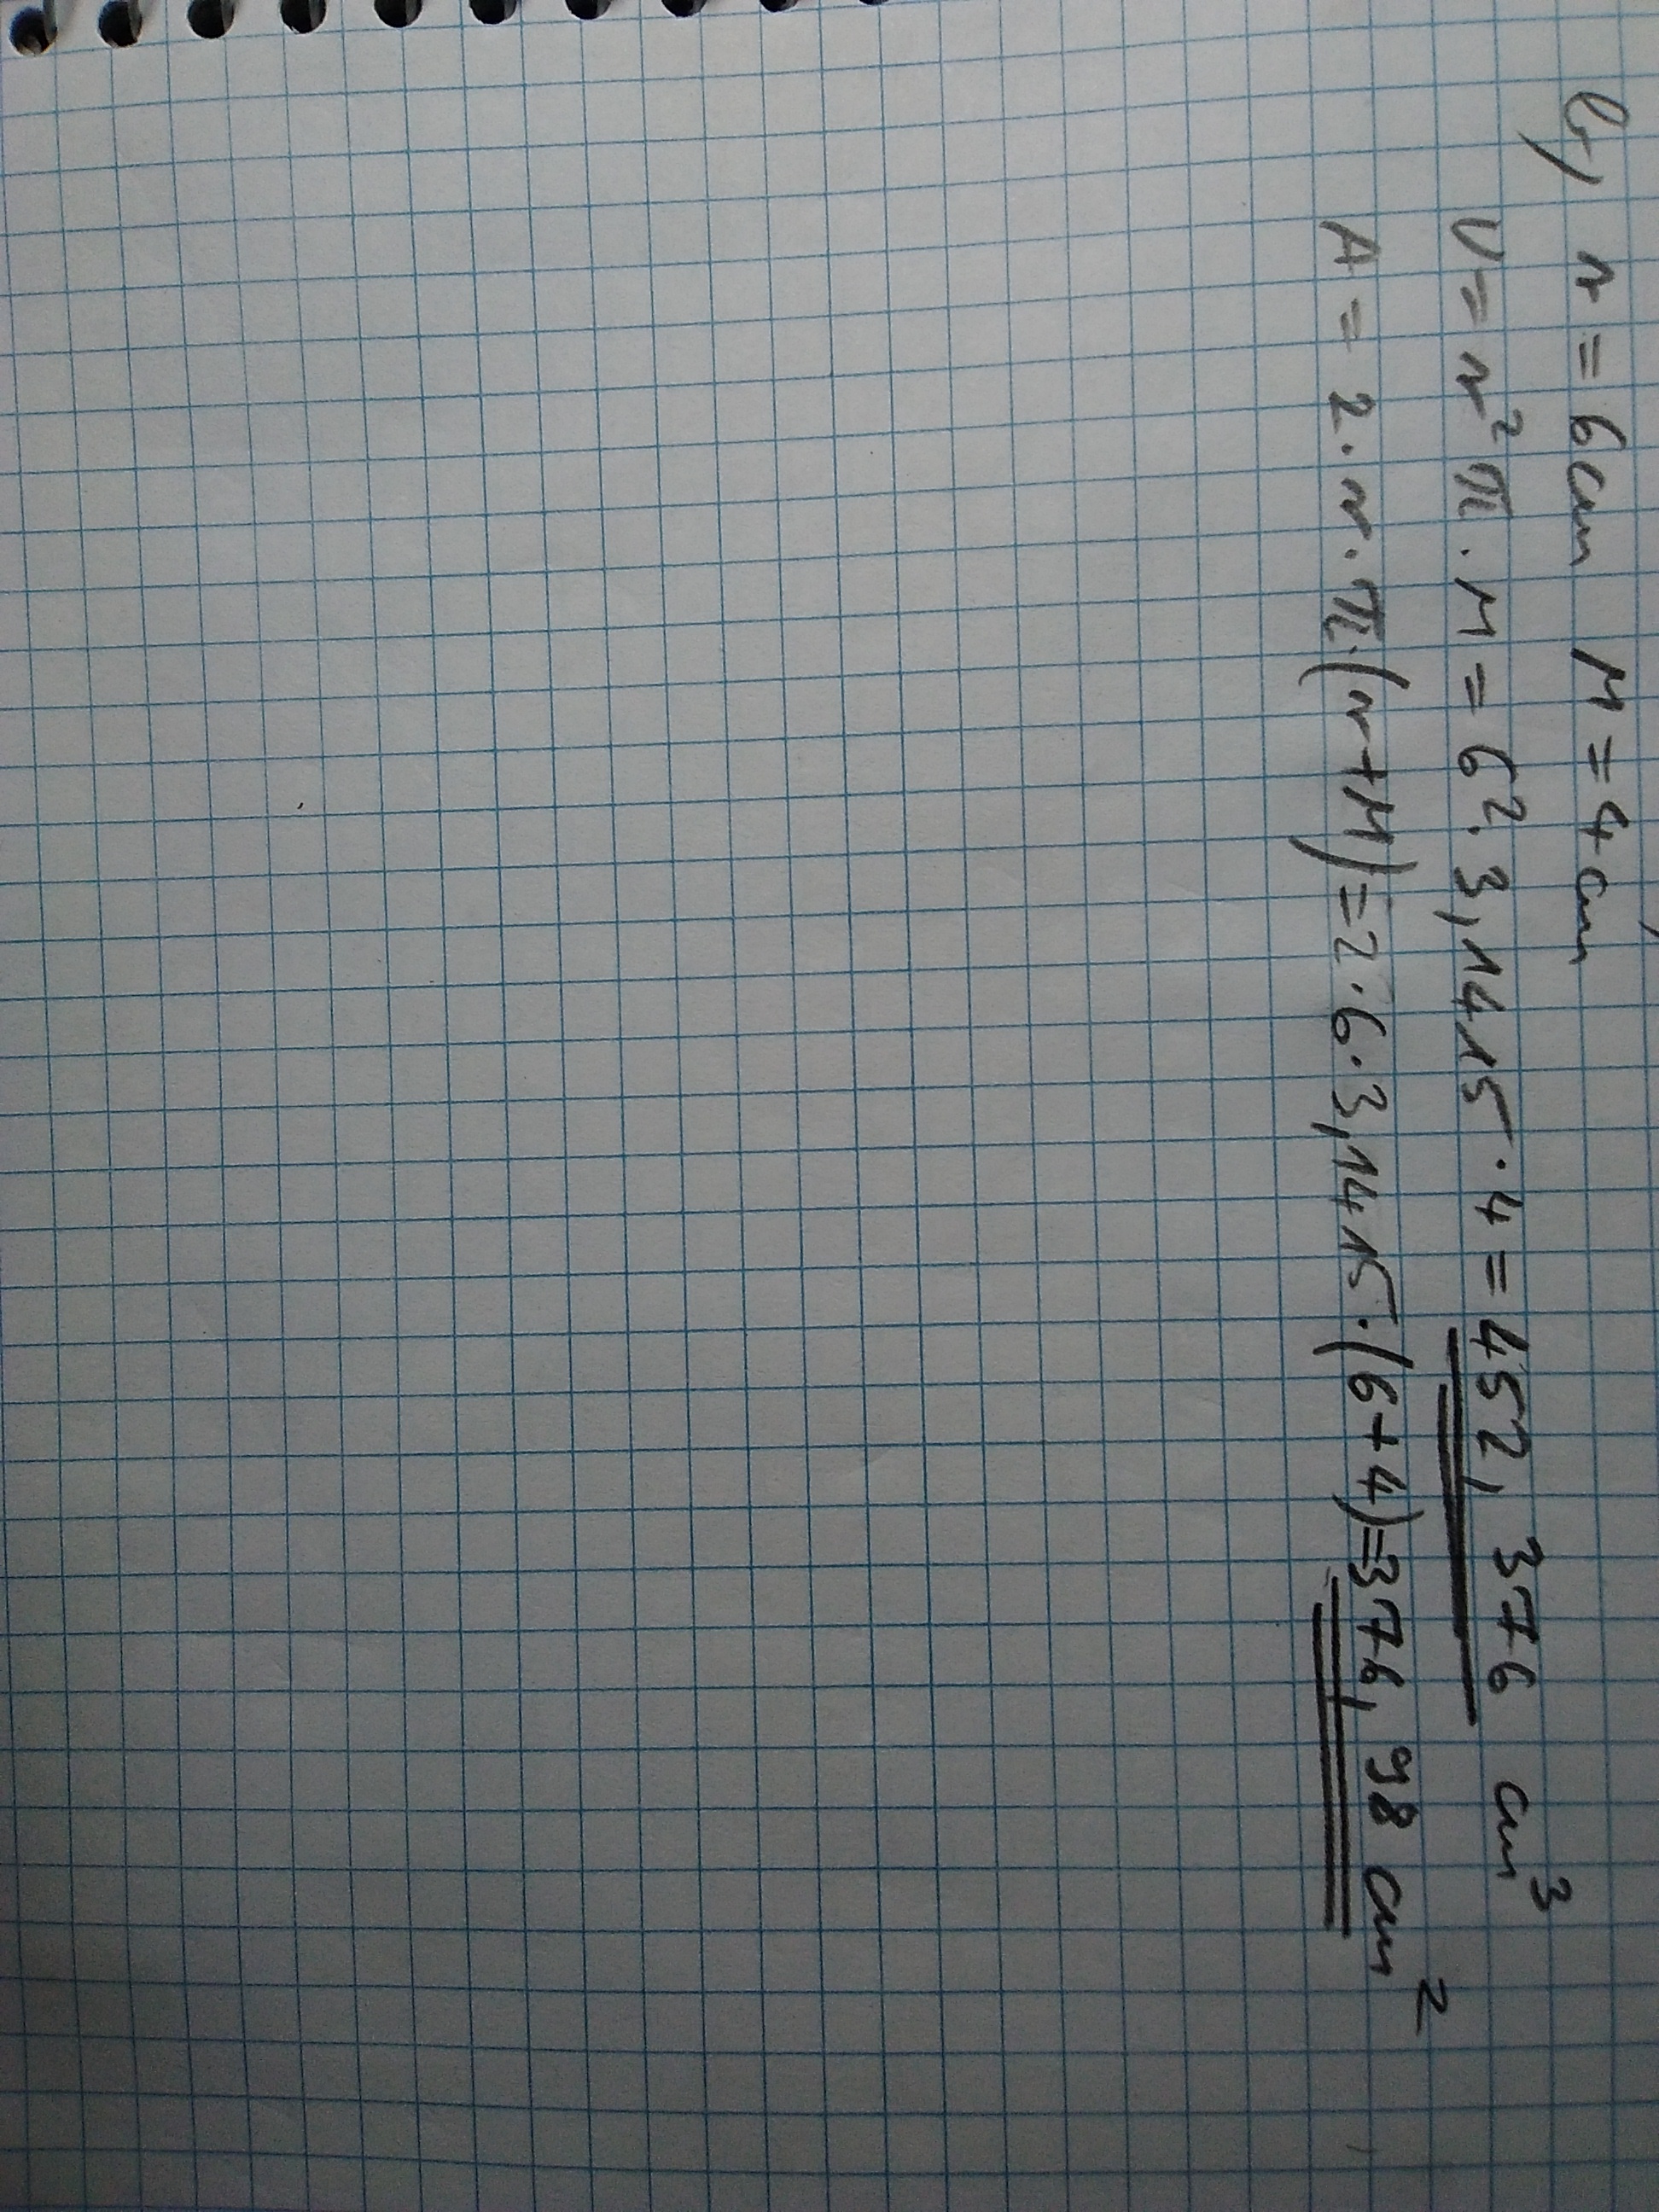 b) r = 6cm M = 4cm
V = r²π · M = 6² · 3,1415 · 4 = 452,376 cm³
A = 2 · r · π · (r+M) = 2 · 6 · 3,1415 · (6+4) = 376,98 cm²